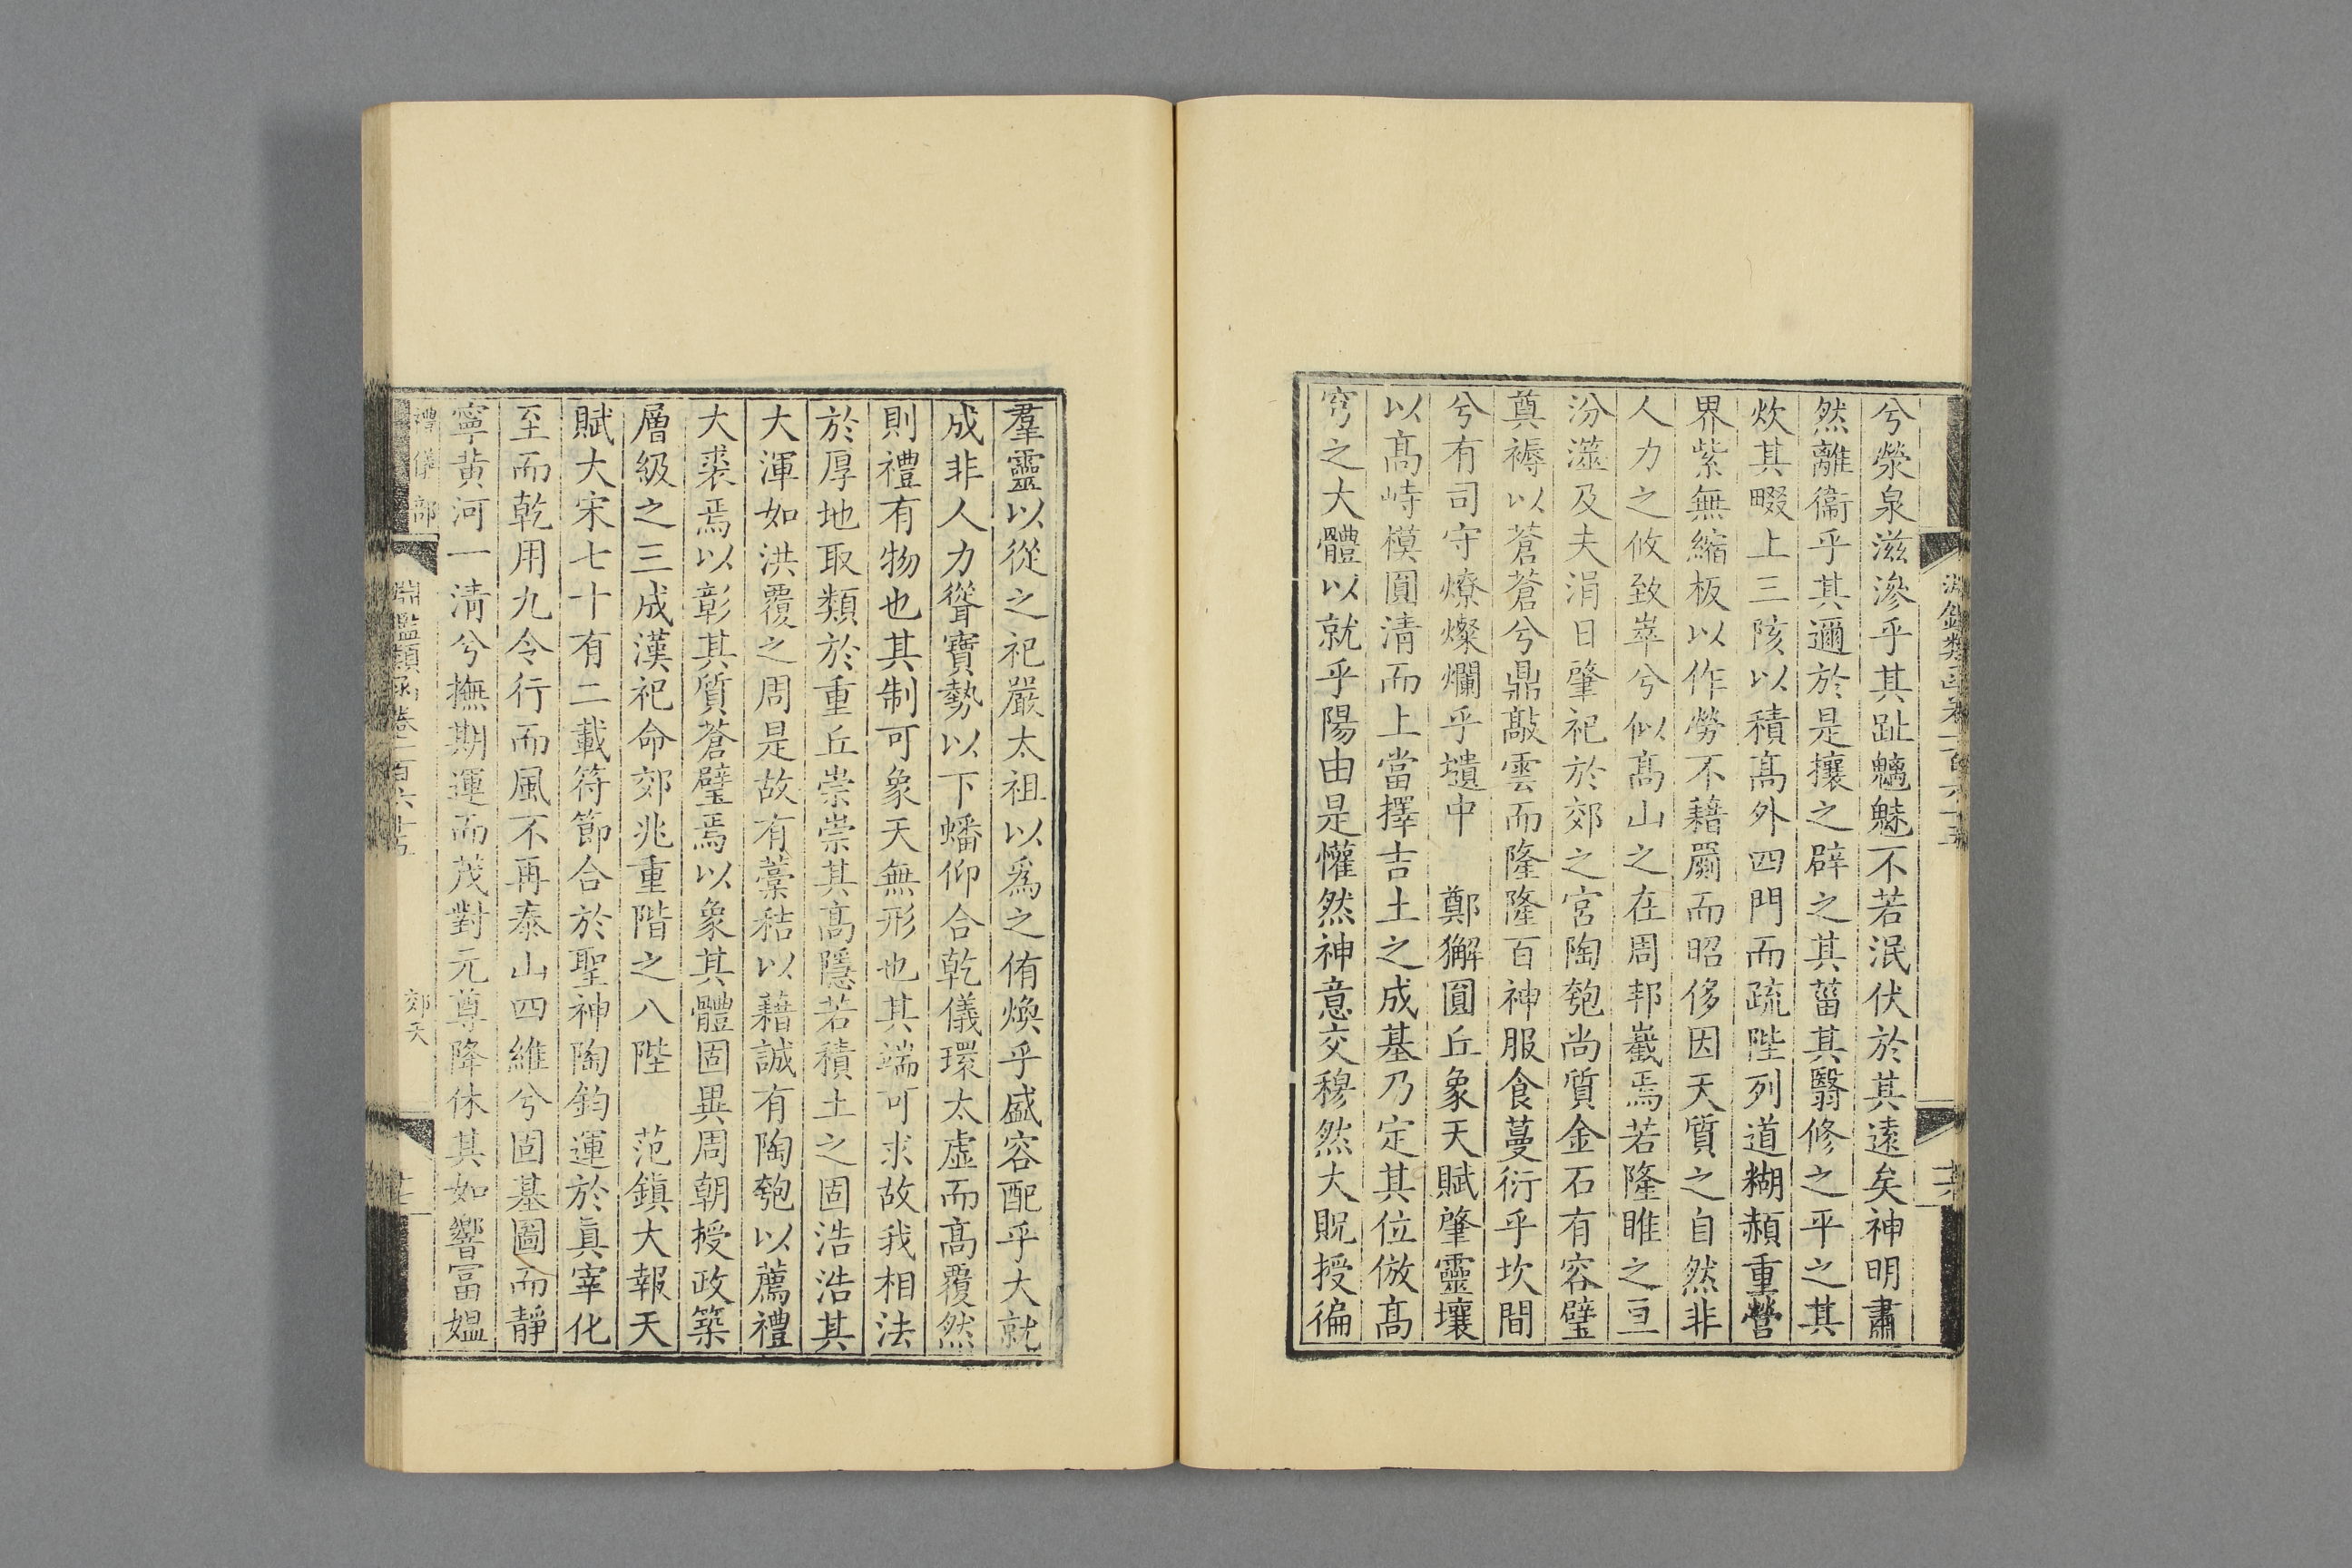 兮滎泉滋滲乎其趾魑魅不若泯伏於其遠矣神明肅
然離衞乎其邇於是攘之辟之其菑其翳修之平之其
炊其畷上三陔以積髙外四門而疏陛列道糊赬重營
界紫無縮板以作勞不藉罽而昭侈因天質之自然非
人力之攸致崒兮似髙山之在周邦巀焉若隆睢之亘
汾澨及夫涓日肇祀於郊之宮陶匏尚質金石有容璧
奠褥以蒼蒼兮鼎敲雲而隆隆百神服食蔓衍乎坎間
兮有司守燎燦爛乎壝中　鄭獬圓丘象天賦肇靈壤
以髙峙模圓清而上當擇吉土之成基乃定其位倣髙
穹之大體以就乎陽由是懽然神意交穆然大貺授徧
羣靈以從之祀嚴太祖以爲之侑煥乎盛容配乎大就
成非人力聳寶勢以下蟠仰合乾儀環太虛而髙覆然
則禮有物也其制可象天無形也其端可求故我相法
於厚地取類於重丘崇崇其髙隱若積土之固浩浩其
大渾如洪覆之周是故有藁秸以藉誠有陶匏以薦禮
大裘焉以彰其質蒼璧焉以象其體固異周朝授政築
層級之三成漢祀命郊兆重階之八陛　范鎮大報天
賦大宋七十有二載符節合於聖神陶鈞運於眞宰化
至而乾用九令行而風不再泰山四維兮固基圖而靜
寧黃河一清兮撫期運而茂對元尊降休其如響富媼
禮儀部
淵鑑類函卷一百六十五
郊天